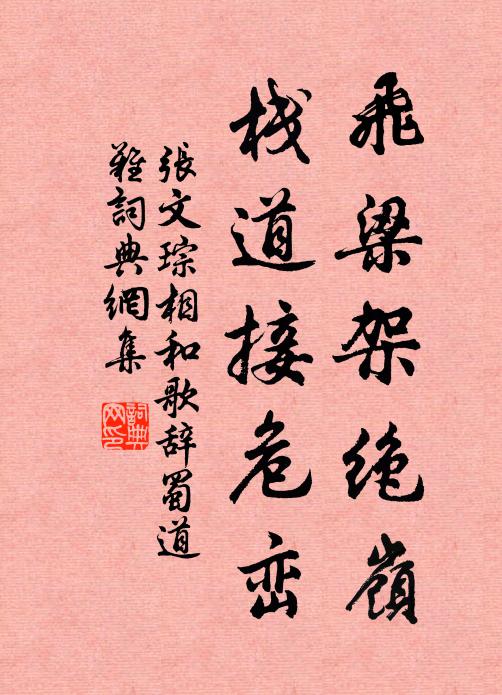 飛梁架绝嶺
栈道接危峦
張文琮相和歌辞蜀道
難詞典網集
詞典網印